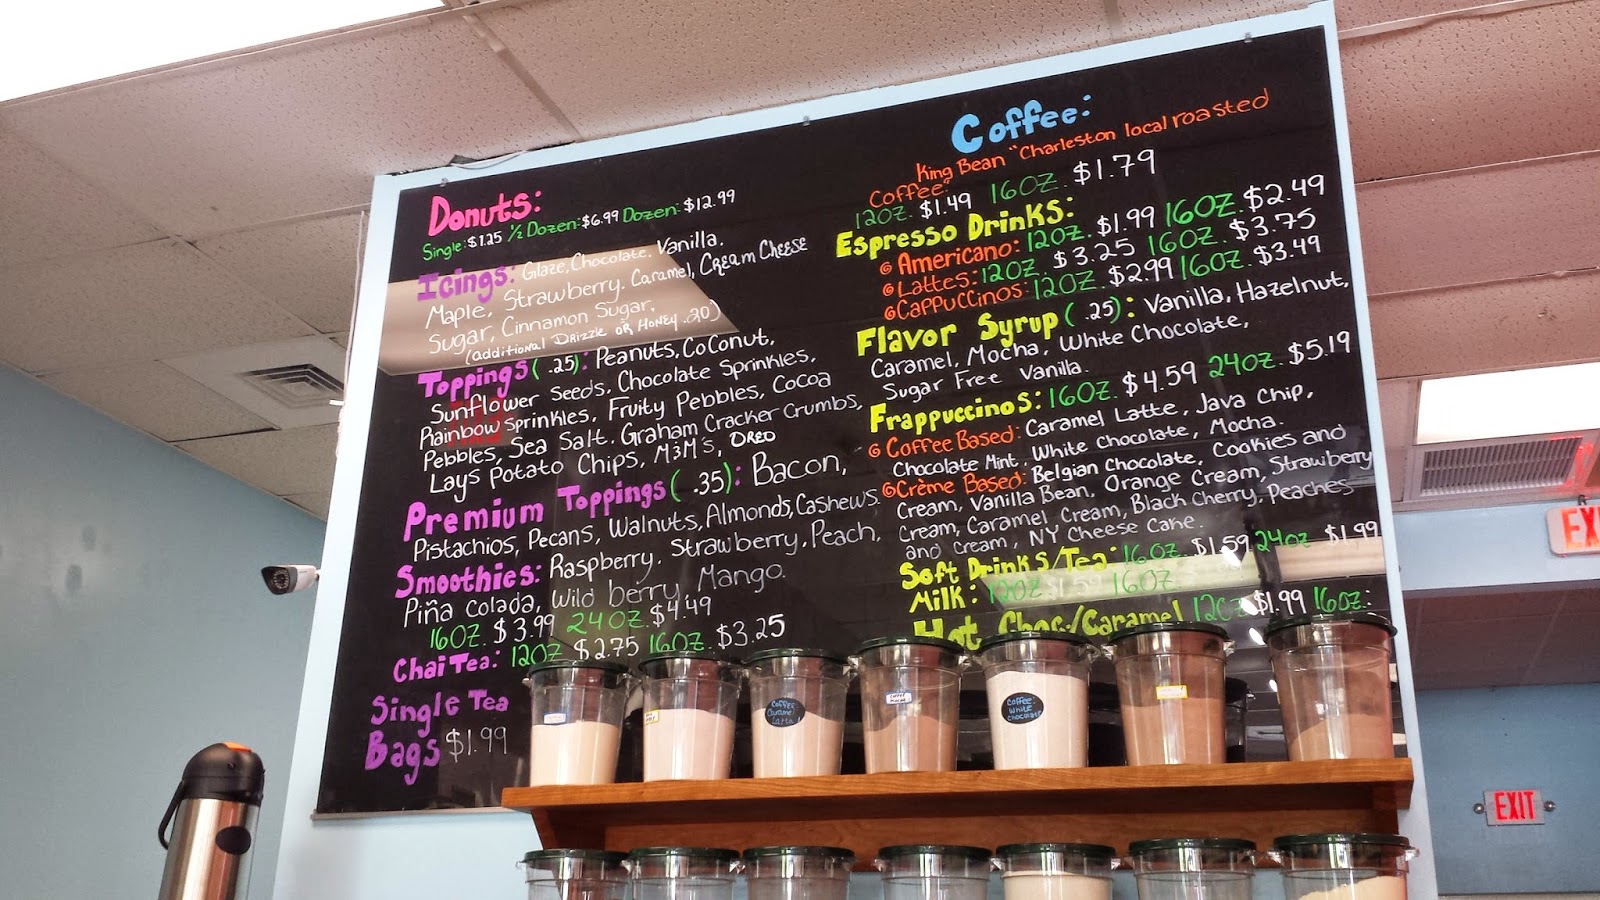 Donuts:
Single: $1.25 ½ Dozen: $6.99 Dozen: $12.99
Icings: Glaze, Chocolate. Vanilla.
Maple, Strawberry. Caramel, Cream Cheese
Sugar, Cinnamon Sugar.
(additional Drizzle or Honey .20)
Toppings (.25): Peanuts, Coconut,
Sunflower Seeds, Chocolate Sprinkles,
Rainbow Sprinkles, Fruity Pebbles, Cocoa
Pebbles, Sea Salt. Graham Cracker Crumbs,
Lays Potato Chips, M3M's, Oreo
Premium Toppings (.35): Bacon,
Pistachios, Pecans, Walnuts, Almonds, Cashews.
Smoothies: Raspberry. Strawberry. Peach,
Piña Colada, Wild berry, Mango.
16oz. $3.99 24oz. $4.49
Chai Tea: 12oz $2.75 16oz. $3.25
Single Tea
Bags $1.99
Coffee:
King Bean "Charleston local roasted
Coffee"
12oz. $1.49 16oz. $1.79
Espresso Drinks:
Americano: 12oz. $1.99 16oz. $2.49
Lattes: 12oz. $3.25 16oz. $3.75
Cappuccinos: 12oz. $2.99 16oz. $3.49
Flavor Syrup (.25): Vanilla, Hazelnut,
Caramel, Mocha, White Chocolate,
Sugar Free Vanilla.
Frappuccinos: 16oz. $4.59 24oz. $5.19
Coffee Based: Caramel Latte, Java Chip,
Chocolate Mint, White Chocolate, Mocha.
Crème Based: Belgian Chocolate, Cookies and
Cream, Vanilla Bean, Orange Cream, Strawberry
Cream, Caramel Cream, Black Cherry, Peaches
and Cream, NY Cheese Cake.
Soft Drinks/Tea: 16oz. $1.59 24oz. $1.99
Milk: 12oz $1.59 16oz
Hot Choc/Caramel 12oz $1.99 16oz.:
Coffee:
Caramel
Latte
Coffee:
White
Chocolate
EXIT